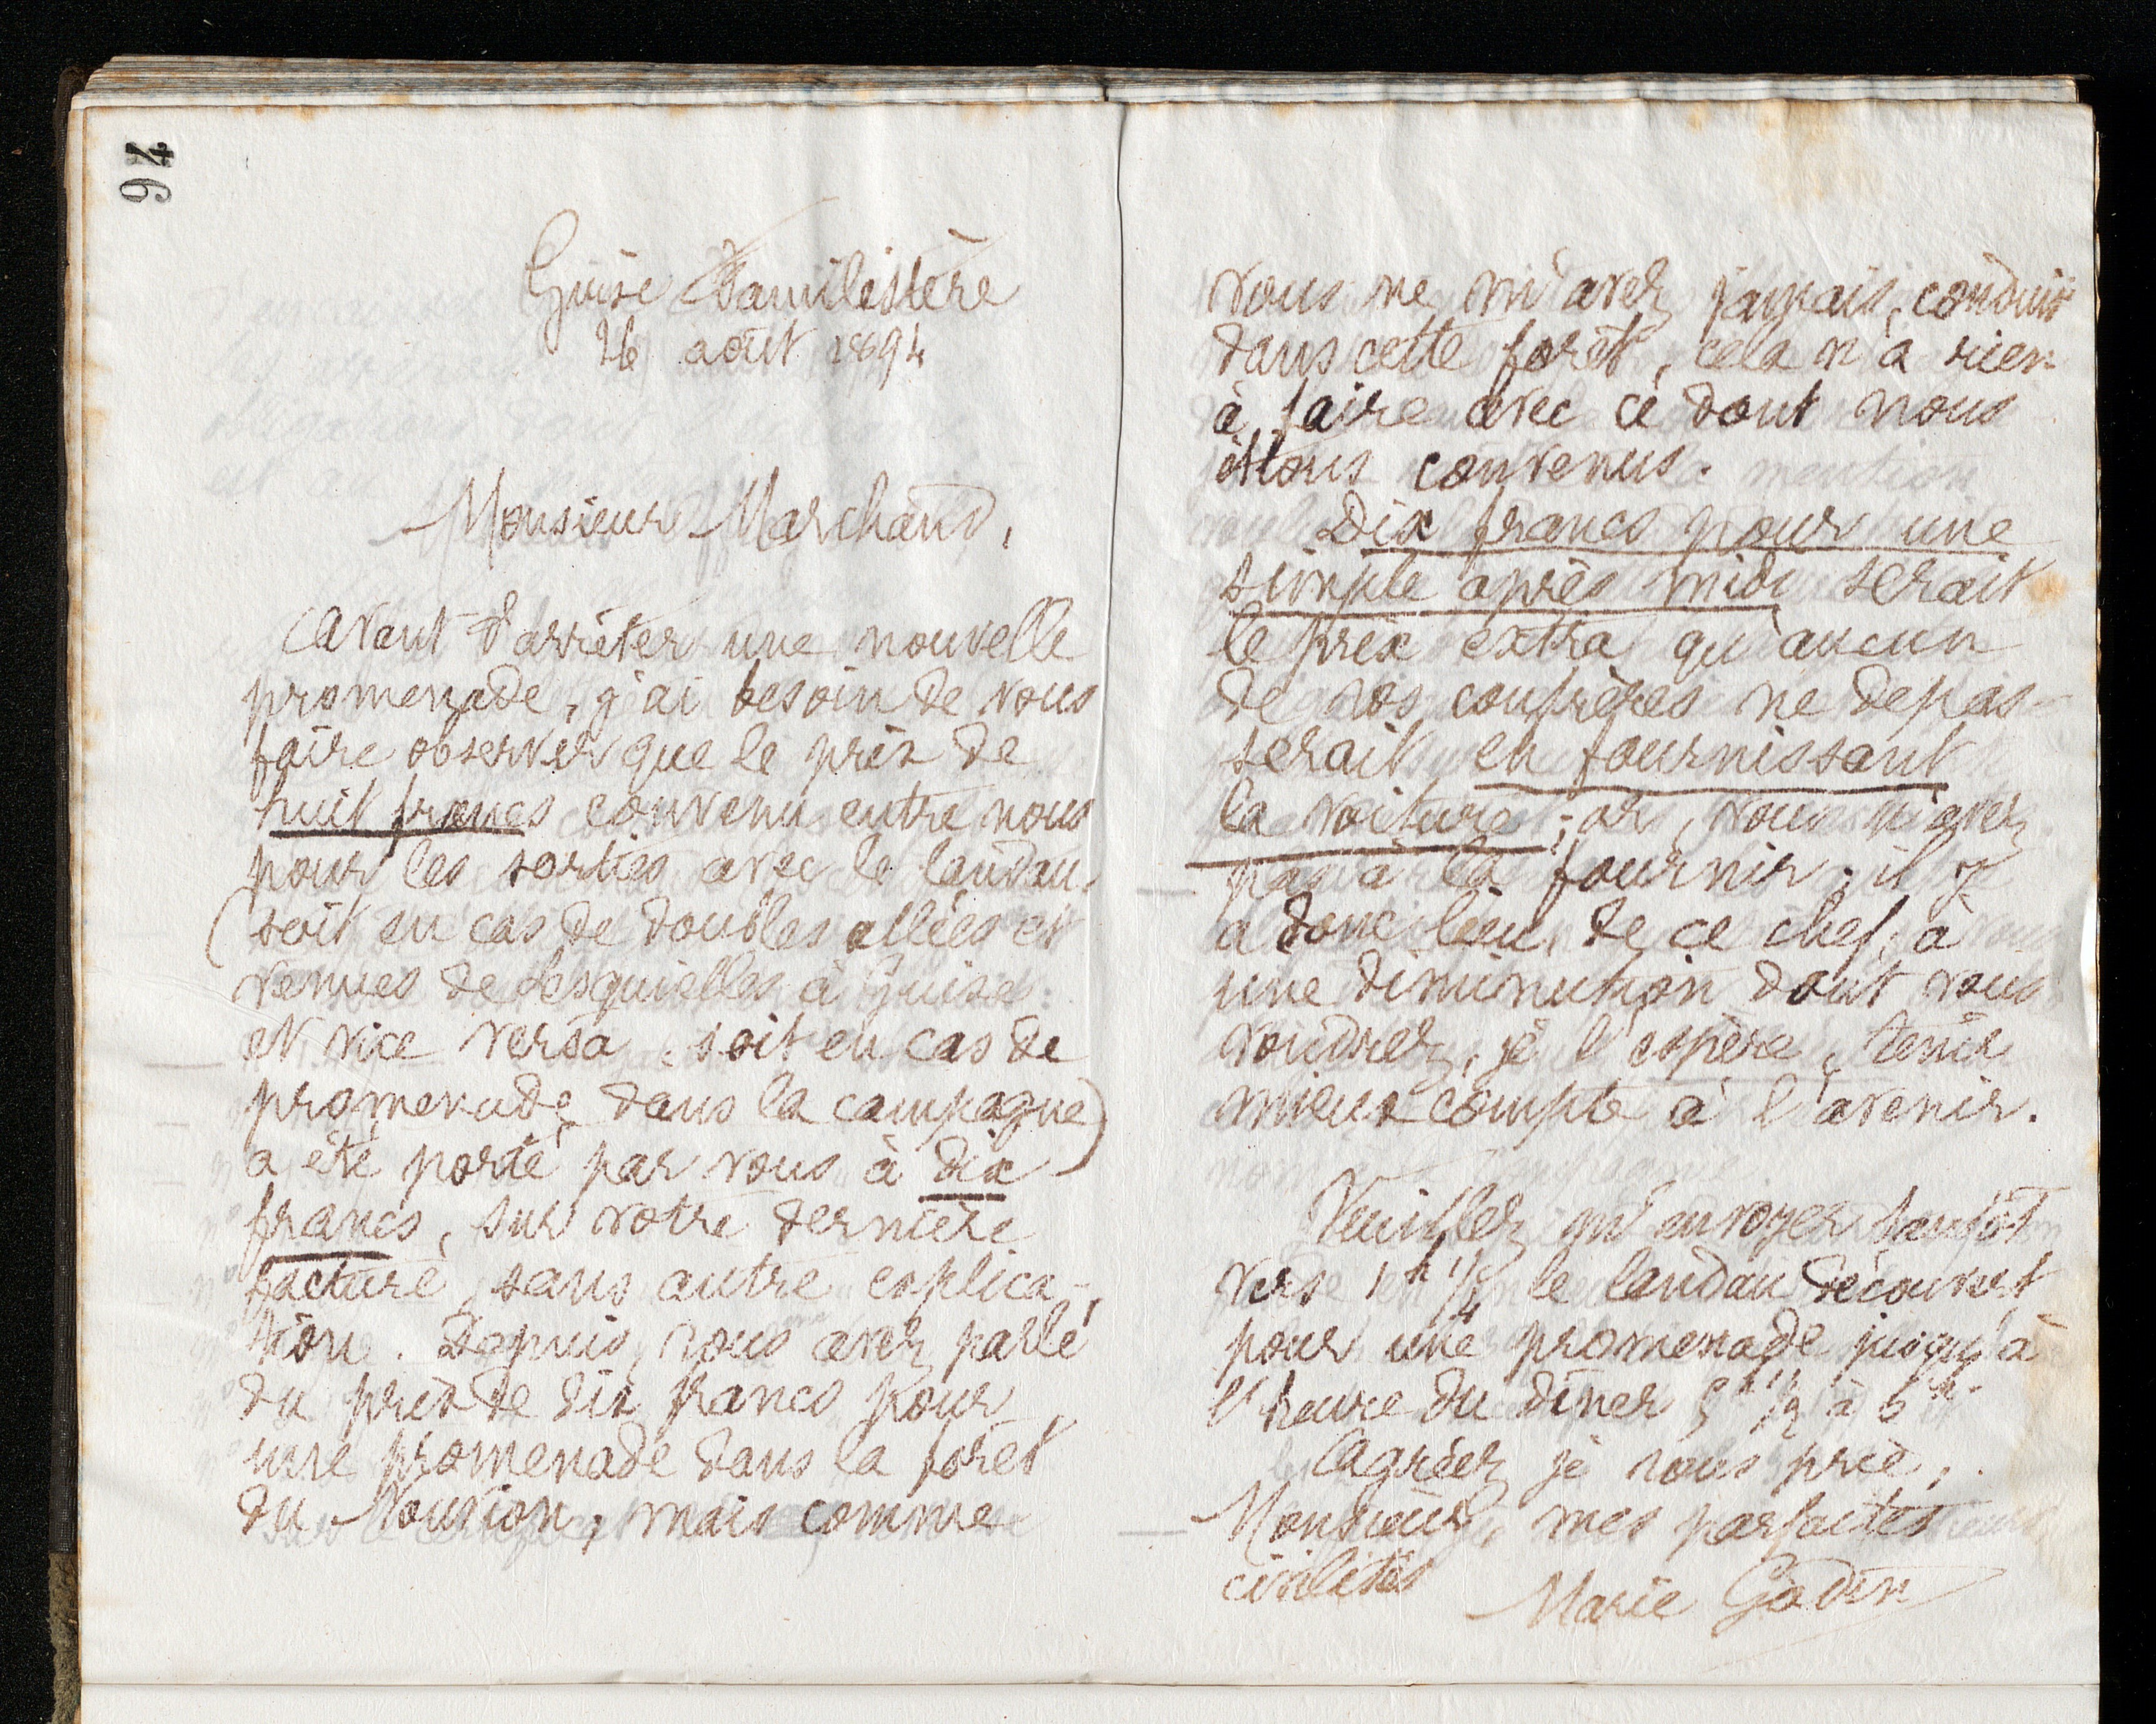 94
Guise Familistère
26 août 1894
Monsieur Marchand,
Avant d'arrêter une nouvelle
promenade, j'ai besoin de vous
faire observer que le prix de
huit francs convenu entre nous
pour les sorties avec le landau,
(soit en cas de doubles allées et
venues de Lesquielles à Guise
et vice versa, soit en cas de
promenade dans la campagne)
a été porté par vous à dix
francs, sur votre dernière
facture, sans autre explica-
tion. Depuis, vous avez parlé
du prix de dix francs pour
une promenade dans la forêt
du Nouvion, mais comme
vous ne m'avez jamais conduit
dans cette forêt, cela n'a rien
à faire avec ce dont nous
étions convenus.
Dix francs pour une
simple après midi serait
le prix extra qu'aucun
de vos confrères ne dépas-
serait en fournissant
la voiture ; or, vous n'avez
pas à la fournir ; il y
a donc lieu, de ce chef, à
une diminution dont vous
voudrez, je l'espère, tenir
mieux compte à l'avenir.
Veuillez m'envoyer tantôt
vers 1h 1/4 le landau découvert
pour une promenade jusqu'à
l'heure du dîner 5h 1/2 à 6h.
Agréez je vous prie,
Monsieur, mes parfaites
civilités
Marie Godin